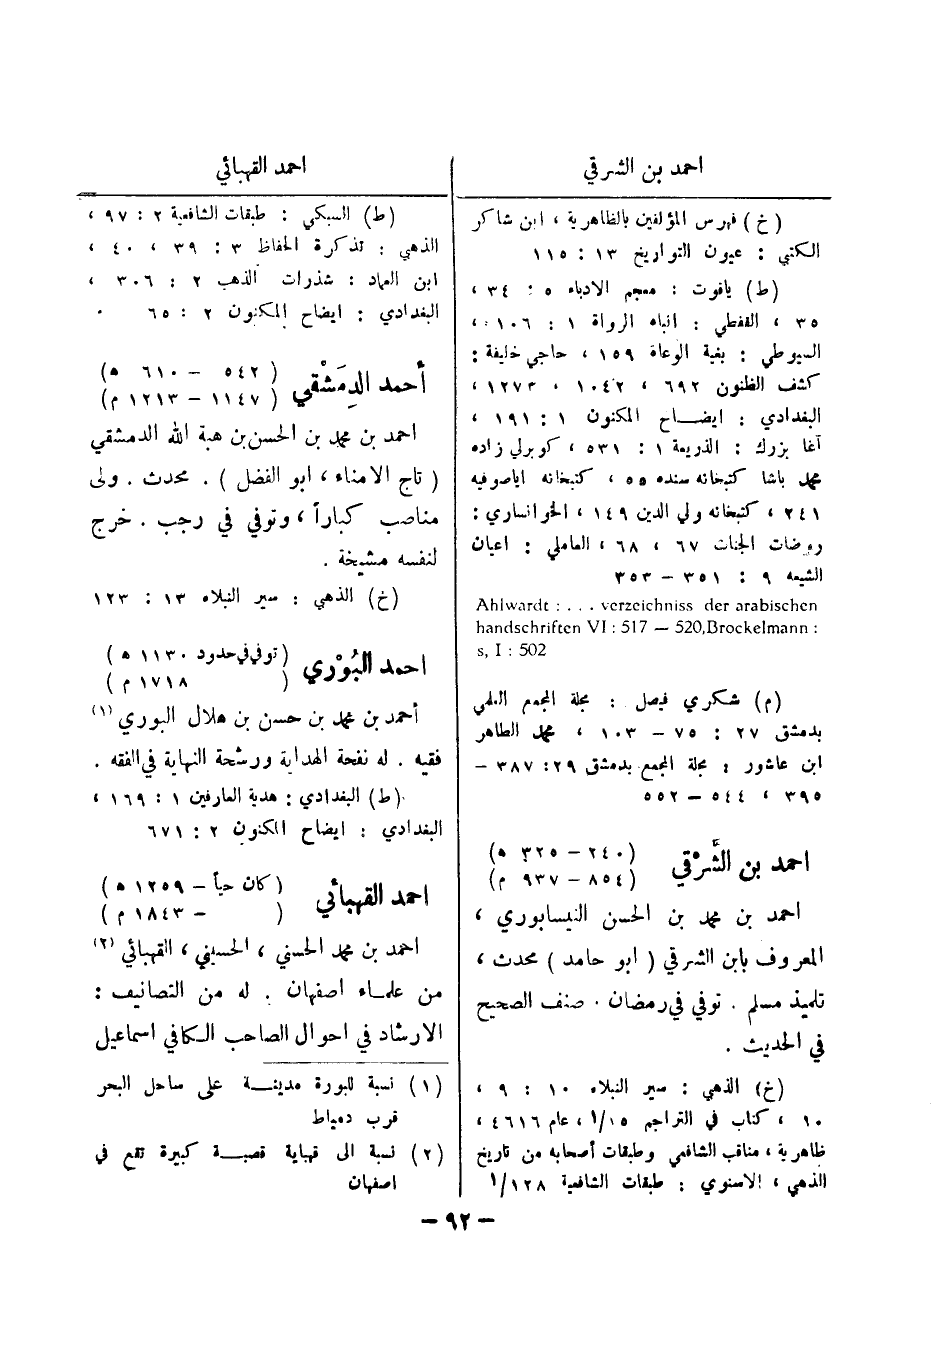 احمد بن الشرقي
(خ) فهرس المؤلفين بالظاهرية ، ابن شاكر
الكتبي : عيون التواريخ ١٣ : ١١٥
(ط) ياقوت : معجم الادباء ٥ : ٣٤ ،
٣٥ ، القفطي : انباه الرواة ١ : ١٠٦ ،
السيوطي : بغية الوعاة ١٥٩ ، حاجي خليفة :
كشف الظنون ٦٩٢ ، ١٠٤٢ ، ١٢٧٣ ،
البغدادي : ايضاح المكنون ١ : ١٩١ ،
آغا بزرك : الذريعة ١ : ٥٣١ ، كوبرلي زاده
محمد باشا كتبخانه سنده ٥٥ ، كتبخانه اياصوفيه
٢٤١ ، كتبخانه ولي الدين ١٤٩ ، الخوانساري :
روضات الجنات ٦٧ ، ٦٨ ، العاملي : اعيان
الشيعه ٩ : ٣٥١ – ٣٥٣
Ahlwardt : . . . verzeichniss der arabischen
handschriften VI : 517 — 520,Brockelmann :
s, I : 502
(م) شكري فيصل : مجلة المجمع العلمي
بدمشق ٢٧ : ٧٥ – ١٠٣ ، محمد الطاهر
ابن عاشور : مجلة المجمع بدمشق ٢٩ : ٣٨٧ –
٣٩٥ ، ٥٤٤ – ٥٥٢
احمد بن الشَّرْقي (٢٤٠ – ٣٢٥ ه)
(٨٥٤ – ٩٣٧ م)
احمد بن محمد بن الحسن النيسابوري ،
المعروف بابن الشرقي ( ابو حامد ) محدث ،
تلميذ مسلم . توفي في رمضان . صنف الصحيح
في الحديث .
(خ) الذهبي : سير النبلاء ١٠ : ٩ ،
١٠ ، كتاب في التراجم ١/١٥ ، عام ٤٦١٦ ،
ظاهرية ، مناقب الشافعي وطبقات أصحابه من تاريخ
الذهبي ، الاسنوي : طبقات الشافعية ١/١٢٨
احمد القهبائي
(ط) السبكي : طبقات الشافعية ٢ : ٩٧ ،
الذهبي : تذكرة الحفاظ ٣ : ٣٩ ، ٤٠ ،
ابن العماد : شذرات الذهب ٢ : ٣٠٦ ،
البغدادي : ايضاح المكنون ٢ : ٦٥ .
أحمد الدِمَشْقي ( ٥٤٢ – ٦١٠ ه )
( ١١٤٧ – ١٢١٣ م )
احمد بن محمد بن الحسن بن هبة الله الدمشقي
( تاج الامناء ، ابو الفضل ) . محدث . ولي
مناصب كباراً ، وتوفي في رجب . خرج
لنفسه مشيخة .
(خ) الذهبي : سير النبلاء ١٣ : ١٢٣
احمد البُوْري ( توفي في حدود ١١٣٠ ه )
( ١٧١٨ م )
أحمد بن محمد بن حسن بن هلال البوري (١)
فقيه . له نفحة الهداية ورشحة النهاية في الفقه .
(ط) البغدادي : هدية العارفين ١ : ١٦٩ ،
البغدادي : ايضاح المكنون ٢ : ٦٧١
احمد القهبائي ( كان حياً – ١٢٥٩ ه )
( – ١٨٤٣ م )
احمد بن محمد الحسني ، الحسيني ، القهبائي (٢)
من علماء اصفهان . له من التصانيف :
الارشاد في احوال الصاحب الكافي اسماعيل
(١) نسبة للبورة مدينة على ساحل البحر
قرب دمياط
(٢) نسبة الى قهاية قصبة كبيرة تقع في
اصفهان
– ٩٢ –